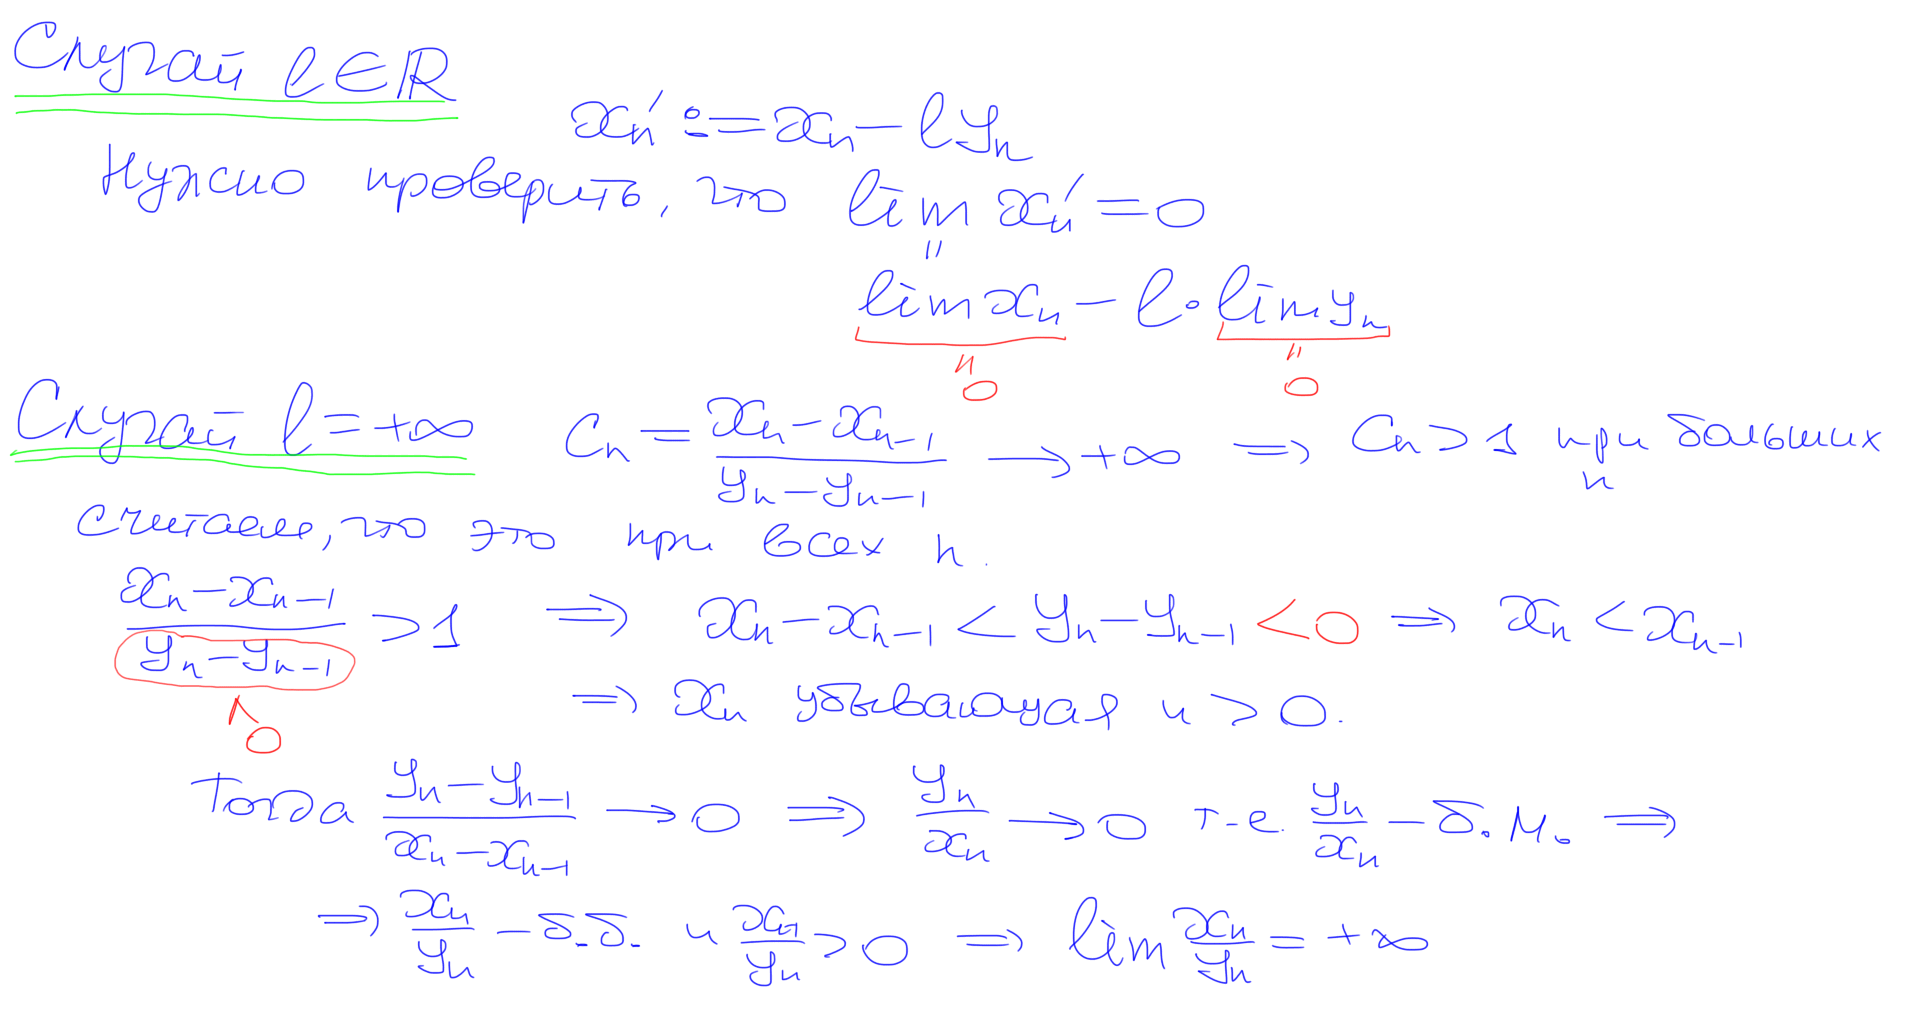 Случай l∈ℝ
xₙ' := xₙ − lyₙ
Нужно проверить, что lim xₙ' = 0
"
lim xₙ − l · lim yₙ
" "
0 0
Случай l = +∞ Cₙ = (xₙ − xₙ₋₁)/(yₙ − yₙ₋₁) → +∞ ⇒ Cₙ > 1 при больших n
считаем, что это при всех n.
(xₙ − xₙ₋₁)/(yₙ − yₙ₋₁) > 1 ⇒ xₙ − xₙ₋₁ < yₙ − yₙ₋₁ < 0 ⇒ xₙ < xₙ₋₁
∧ 0 ⇒ xₙ убывающая и > 0.
Тогда (yₙ − yₙ₋₁)/(xₙ − xₙ₋₁) → 0 ⇒ yₙ/xₙ → 0 т.е. yₙ/xₙ − б.м. ⇒
⇒ xₙ/yₙ − б.б. и xₙ/yₙ > 0 ⇒ lim xₙ/yₙ = +∞